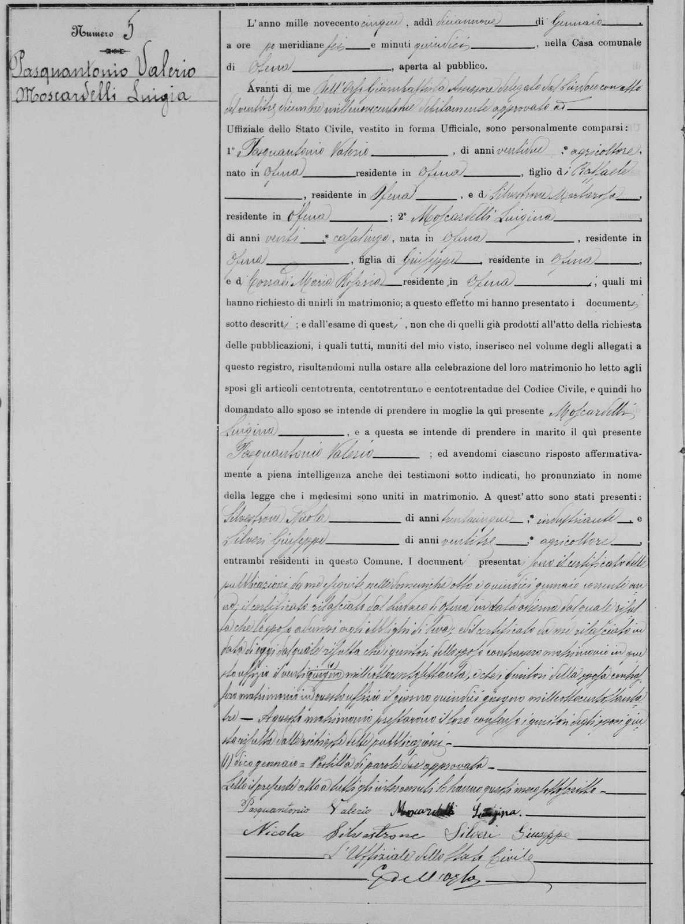 Numero 5
Pasquantonio Valerio
Moscardelli Luigia
L'anno mille novecento cinque, addì diciannove di Gennaio,
a ore po meridiane sei e minuti quindici, nella Casa comunale
di Ofena, aperta al pubblico.
Avanti di me Dell'Orso Giambattista Assessore delegato dal Sindaco con atto
del ventitre debitamente approvato
Uffiziale dello Stato Civile, vestito in forma Ufficiale, sono personalmente comparsi:
1° Pasquantonio Valerio, di anni, agricoltore,
nato in Ofena residente in Ofena, figlio di Raffaele
, residente in Ofena, e di Silvestrone
residente in Ofena; 2° Moscardelli Luigina
di anni venti, casalinga, nata in Ofena, residente in
Ofena, figlia di Giuseppe, residente in Ofena,
e di Maria residente in Ofena; quali mi
hanno richiesto di unirli in matrimonio; a questo effetto mi hanno presentato i documenti
sotto descritti; e dall'esame di questi, non che di quelli già prodotti all'atto della richiesta
delle pubblicazioni, i quali tutti, muniti del mio visto, inserisco nel volume degli allegati a
questo registro, risultandomi nulla ostare alla celebrazione del loro matrimonio ho letto agli
sposi gli articoli centotrenta, centotrentuno e centotrentadue del Codice Civile, e quindi ho
domandato allo sposo se intende di prendere in moglie la quì presente Moscardelli
Luigina, e a questa se intende di prendere in marito il quì presente
Pasquantonio Valerio; ed avendomi ciascuno risposto affermativa-
mente a piena intelligenza anche dei testimoni sotto indicati, ho pronunziato in nome
della legge che i medesimi sono uniti in matrimonio. A quest'atto sono stati presenti:
Silvestrone Nicola di anni, industriante e
Silveri Giuseppe di anni ventitre, agricoltore,
entrambi residenti in questo Comune. I documenti presentati sono il certificato delle
pubblicazioni da me eseguite nelle domeniche otto e quindici gennaio corrente an
no, il certificato rilasciato dal Sindaco di Ofena in data odierna dal quale risul
ta che lo sposo agli obblighi di leva, ed il certificato da me rilasciato in
data di oggi dal quale risulta che i genitori dello sposo contrassero matrimonio in que
sto uffizio il venti giugno milleottocentosettanta, e che i genitori della sposa contras
sero matrimonio in questo uffizio il giorno quindici giugno milleottocentottanta
tre — A questo matrimonio prestarono il loro consenso i genitori degli sposi giu
sta risulta dalla richiesta delle pubblicazioni —
(1) dico gennaio = Postilla di parole due approvata —
Letto il presente atto a tutti gl'intervenuti lo hanno questi meco sottoscritto —
Pasquantonio Valerio Moscardelli Luigina.
Nicola Silvestrone Silveri Giuseppe
L'Uffiziale dello Stato Civile
G. Dell'Orso